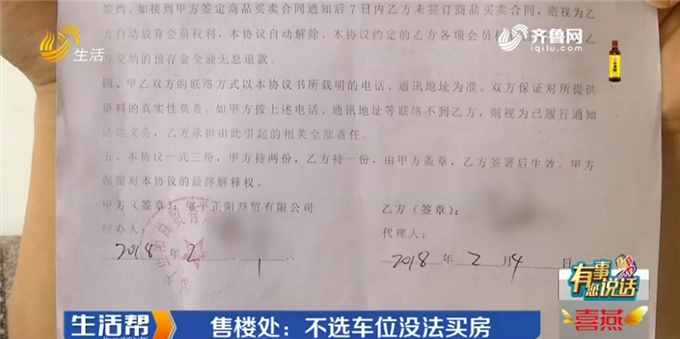 签约，如接到甲方签定商品买卖合同通知后7日内乙方未签订商品买卖合同，则视为乙
方自动放弃会员权利，本协议自动解除，本协议约定的乙方各项会员
交纳的预存金全额无息退款。
四、甲乙双方的联络方式以本协议书所载明的电话、通讯地址为准。双方保证对所提供
资料的真实性负责。如甲方按上述电话、通讯地址等联络不到乙方，则视为已履行通知
送达义务，乙方承担由此引起的相关全部责任。
五、本协议一式三份，甲方持两份，乙方持一份，由甲方盖章，乙方签署后生效。甲方
保留对本协议的最终解释权。
甲方（签章）：正阳商贸有限公司
乙方（签章）：
经办人：
代理人：
2018年2
2018年2月4日
生活
齐鲁网
iqilu.com
有事您说话
喜燕
生活帮
售楼处：不选车位没法买房